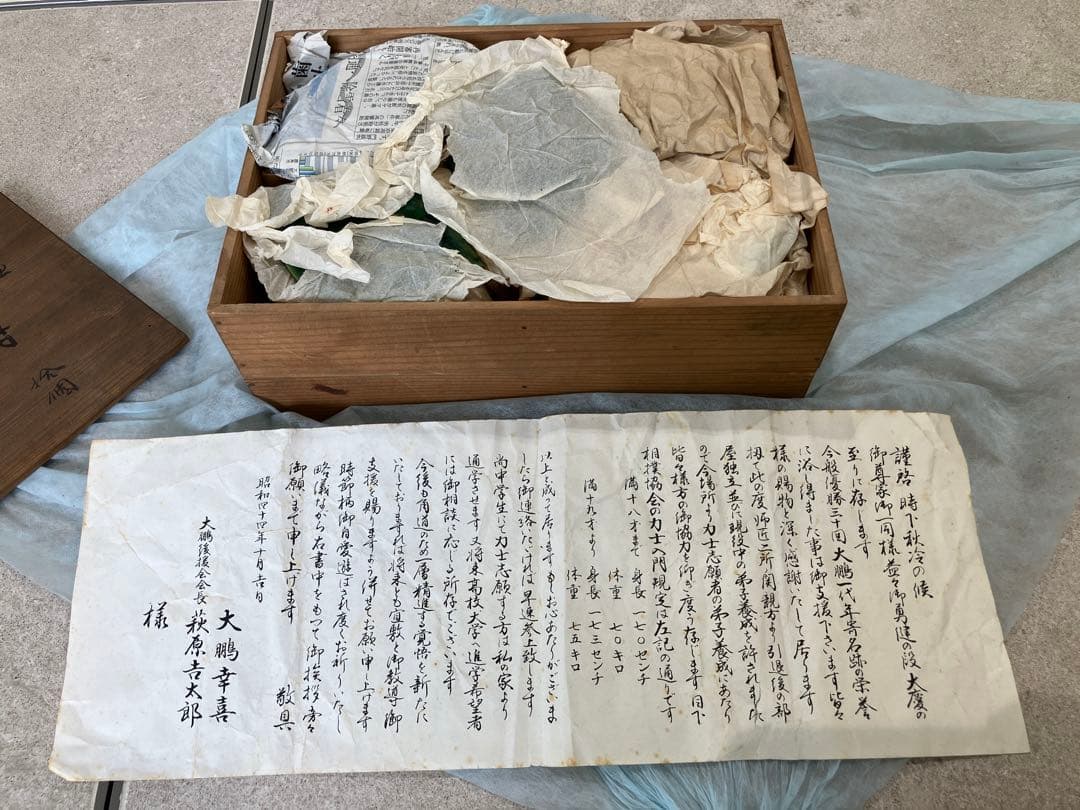 拾個
謹啓 時下秋冷の候
御尊家御一同様益々御勇健の段 大慶の
至りに存じます
今般優勝三十回 大鵬一代年寄名跡の栄誉
に浴し得ました事は御支援下さいます皆々
様の賜物と深く感謝いたして居ります
扨て此の度師匠二所関親方より引退後の部
屋独立並びに現役中の弟子養成を許されました
ので今場所より力士志願者の弟子養成にあたり
皆々様方の御協力を仰ぎ度う存じます 目下
相撲協会の力士入門規定は左記の通りです
満十八才まで 身長 一七〇センチ
体重 七〇キロ
満十九才より 身長 一七三センチ
体重 七五キロ
以上と成って居ります もしお心あたりがございま
したら御連絡くだされば早速参上致します
尚中学生にて力士志願する方は私の家より
通学させます 又将来高校大学へ進学希望者
には御相談に応じる所存でございます
今後も角道のため一層精進する覚悟を新たに
いたしておりますれば将来とも宜敷く御教導御
支援を賜りますよう併せてお願い申し上げます
時節柄御自愛遊ばされ度くお祈りいたし
略儀ながら右書中をもって御挨拶旁々
御願いまで申し上げます
敬具
昭和四十四年十月吉日
大鵬幸喜
大鵬後援会会長 萩原吉太郎
様